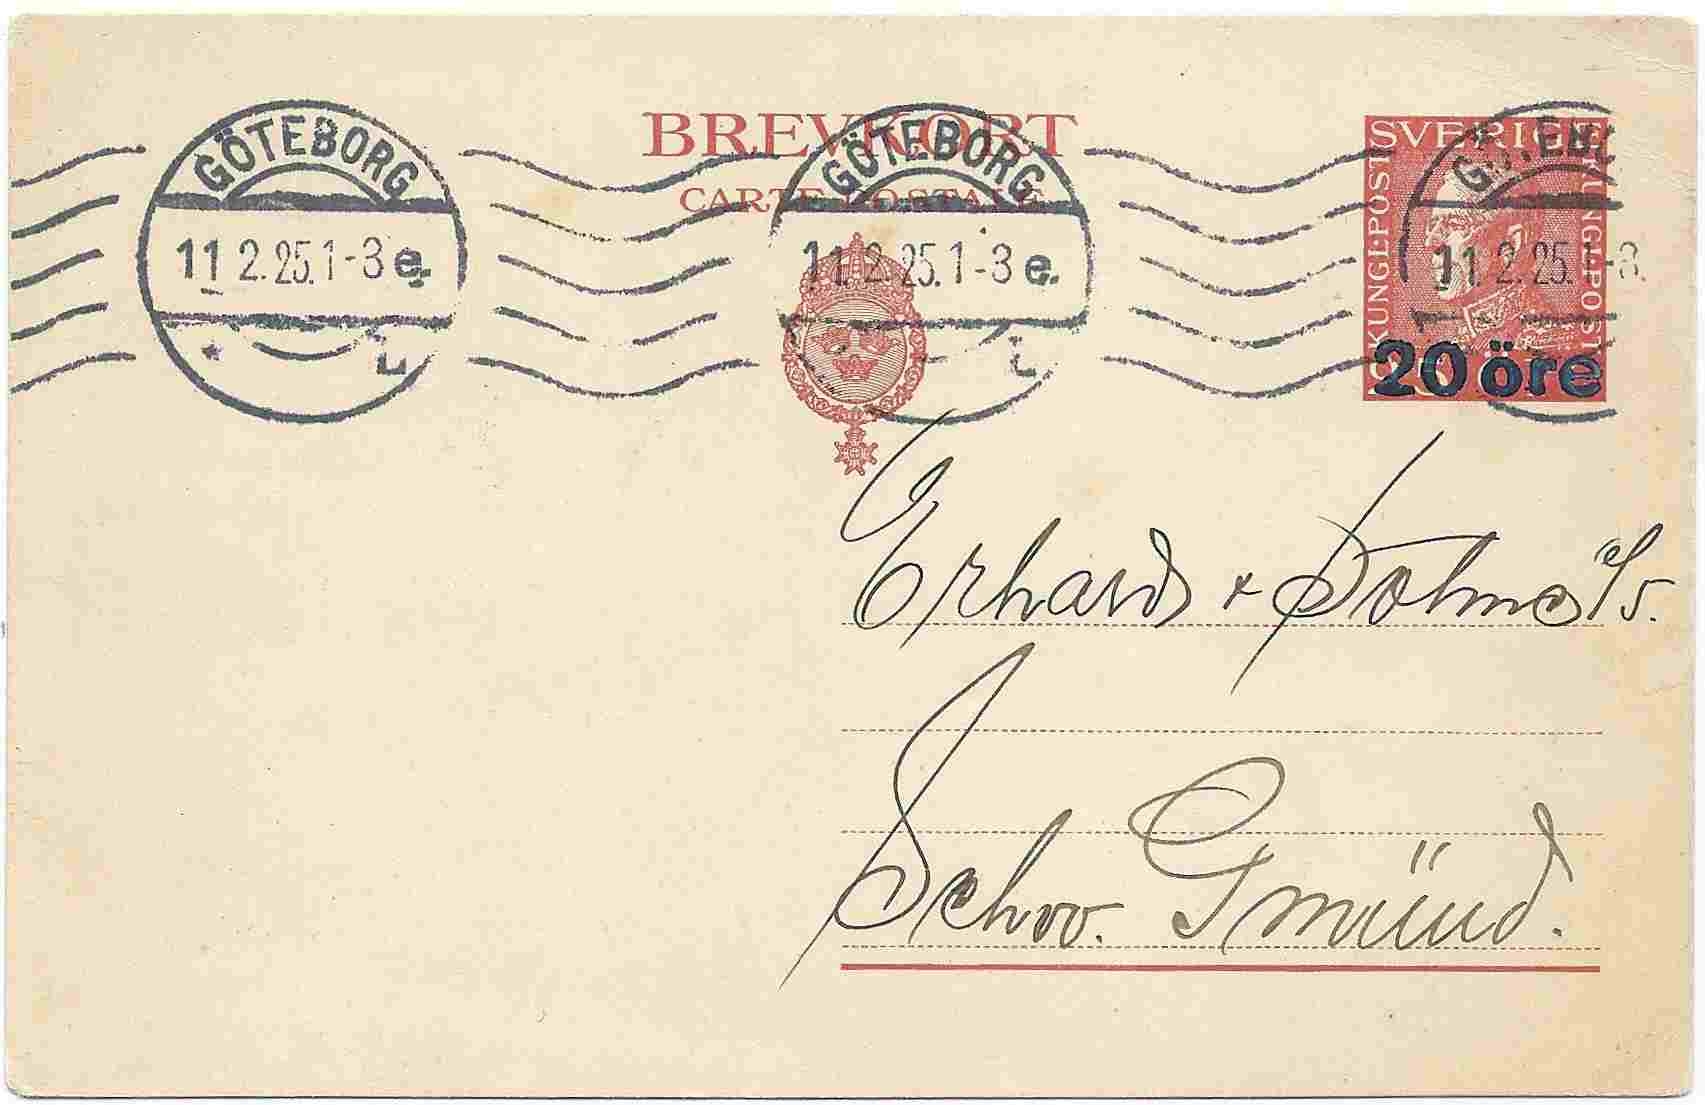 BREVKORT
CARTE POSTALE
GÖTEBORG
11 2.25.1-3 e.
L
GÖTEBORG
11.2.25.1-3 e.
L
SVERIGE
KUNGL·POST
KUNGL·POST
20 öre
11.2.25.1-3.
Erhard & Söhne
Schw. Gmünd.